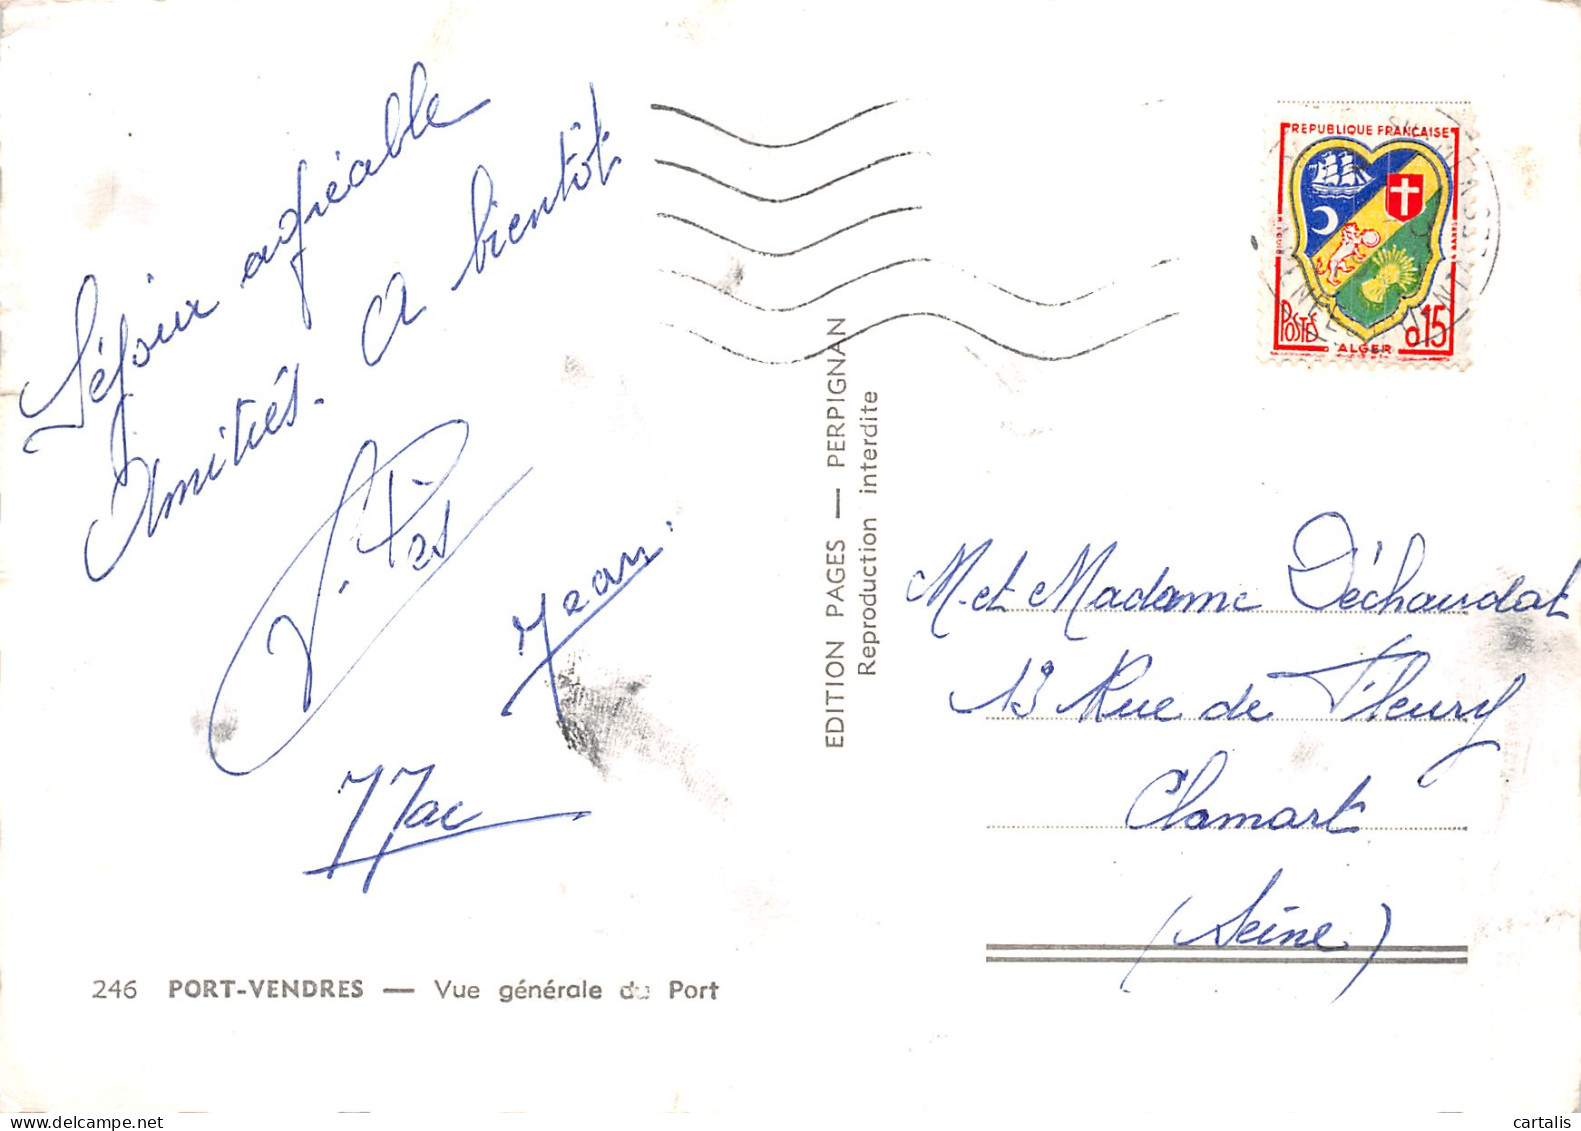 Séjour agréable
Amitiés. A bientôt
Jean
246 PORT-VENDRES — Vue générale du Port
EDITION PAGES — PERPIGNAN
Reproduction interdite
REPUBLIQUE FRANÇAISE
POSTES
0,15
ALGER
M. et Madame Déchaudat
13 Rue de Fleury
Clamart
(Seine)
cartalis